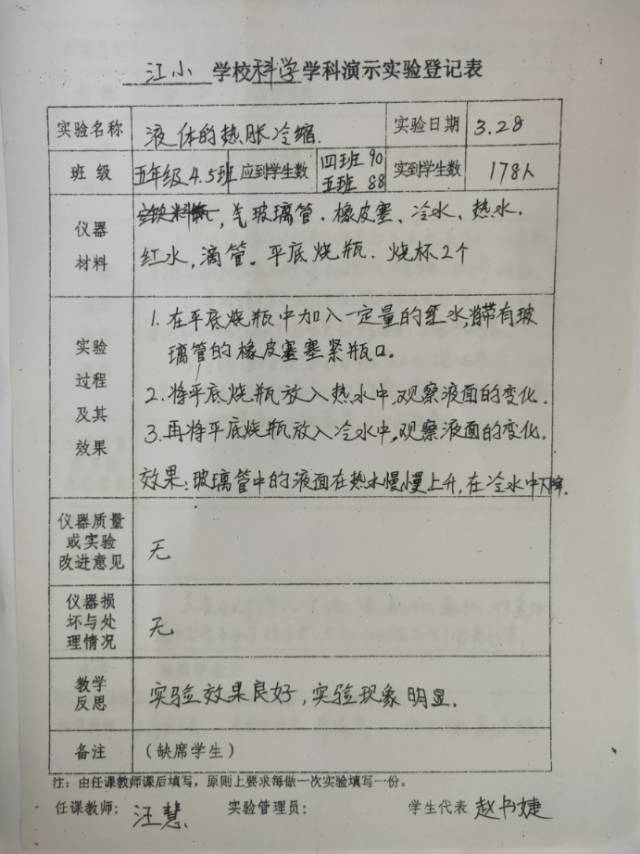 江小 学校科学学科演示实验登记表
实验名称 液体的热胀冷缩. 实验日期 3.28
班级 五年级4.5班 应到学生数 四班 90 五班 88 实到学生数 178人
仪器材料 玻璃管.橡皮塞、冷水、热水.
红水,滴管。平底烧瓶.烧杯2个
实验过程及其效果 1.在平底烧瓶中加入一定量的红水,将带有玻
璃管的橡皮塞塞紧瓶口。
2.将平底烧瓶放入热水中,观察液面的变化.
3.再将平底烧瓶放入冷水中,观察液面的变化.
效果:玻璃管中的液面在热水慢慢上升,在冷水中下降.
仪器质量或实验改进意见 无
仪器损坏与处理情况 无
教学反思 实验效果良好,实验现象明显.
备注 (缺席学生)
注:由任课教师课后填写,原则上要求每做一次实验填写一份。
任课教师: 汪慧 实验管理员: 学生代表 赵书婕